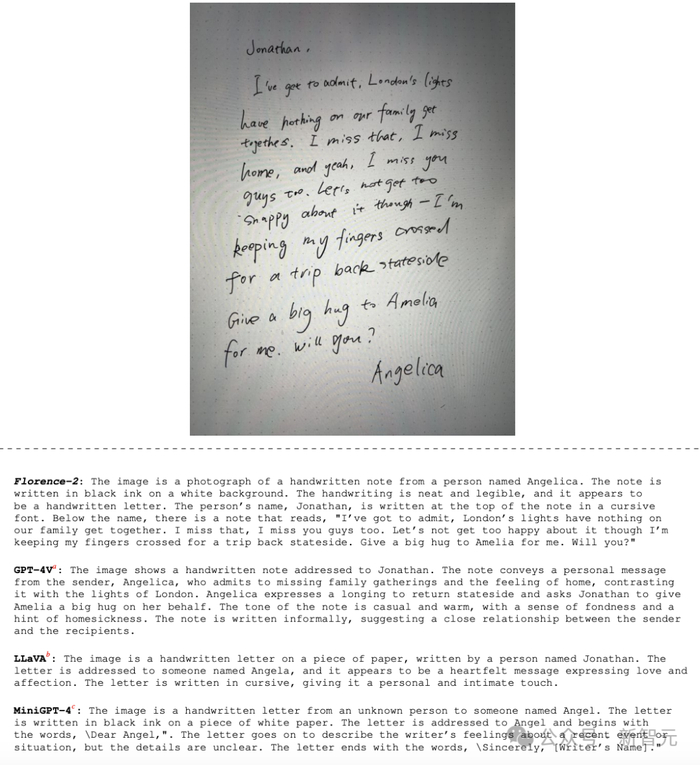 Jonathan,
I've got to admit, London's lights
have nothing on our family get
together. I miss that, I miss
home, and yeah, I miss you
guys too. Let's not get too
snappy about it though – I'm
keeping my fingers crossed
for a trip back stateside
Give a big hug to Amelia
for me. Will you?
Angelica
Florence-2: The image is a photograph of a handwritten note from a person named Angelica. The note is
written in black ink on a white background. The handwriting is neat and legible, and it appears to
be a handwritten letter. The person's name, Jonathan, is written at the top of the note in a cursive
font. Below the name, there is a note that reads, "I've got to admit, London's lights have nothing on
our family get together. I miss that, I miss you guys too. Let's not get too happy about it though I'm
keeping my fingers crossed for a trip back stateside. Give a big hug to Amelia for me. Will you?"
GPT-4Vᵃ: The image shows a handwritten note addressed to Jonathan. The note conveys a personal message
from the sender, Angelica, who admits to missing family gatherings and the feeling of home, contrasting
it with the lights of London. Angelica expresses a longing to return stateside and asks Jonathan to give
Amelia a big hug on her behalf. The tone of the note is casual and warm, with a sense of fondness and a
hint of homesickness. The note is written informally, suggesting a close relationship between the sender
and the recipients.
LLaVAᵇ: The image is a handwritten letter on a piece of paper, written by a person named Jonathan. The
letter is addressed to someone named Angela, and it appears to be a heartfelt message expressing love and
affection. The letter is written in cursive, giving it a personal and intimate touch.
MiniGPT-4ᶜ: The image is a handwritten letter from an unknown person to someone named Angel. The letter
is written in black ink on a piece of white paper. The letter is addressed to Angel and begins with
the words, \Dear Angel,". The letter goes on to describe the writer's feelings about a recent event or
situation, but the details are unclear. The letter ends with the words, \Sincerely, [Writer's Name]."
公众号 · 新智元